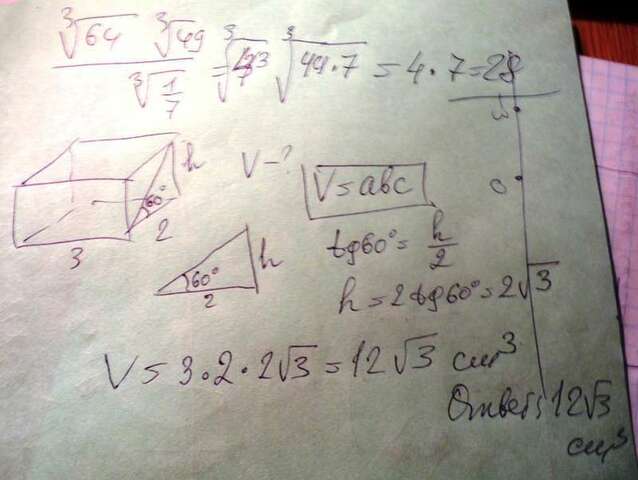 ∛64 ∛49 / ∛(1/7) = ∛4³ ∛49·7 = 4·7=28
3
0
h
60°
2
3
V-?
V=abc
60°
2
h
tg60°= h/2
h=2tg60°=2√3
V=3·2·2√3=12√3 см³
Ответ: 12√3
см³